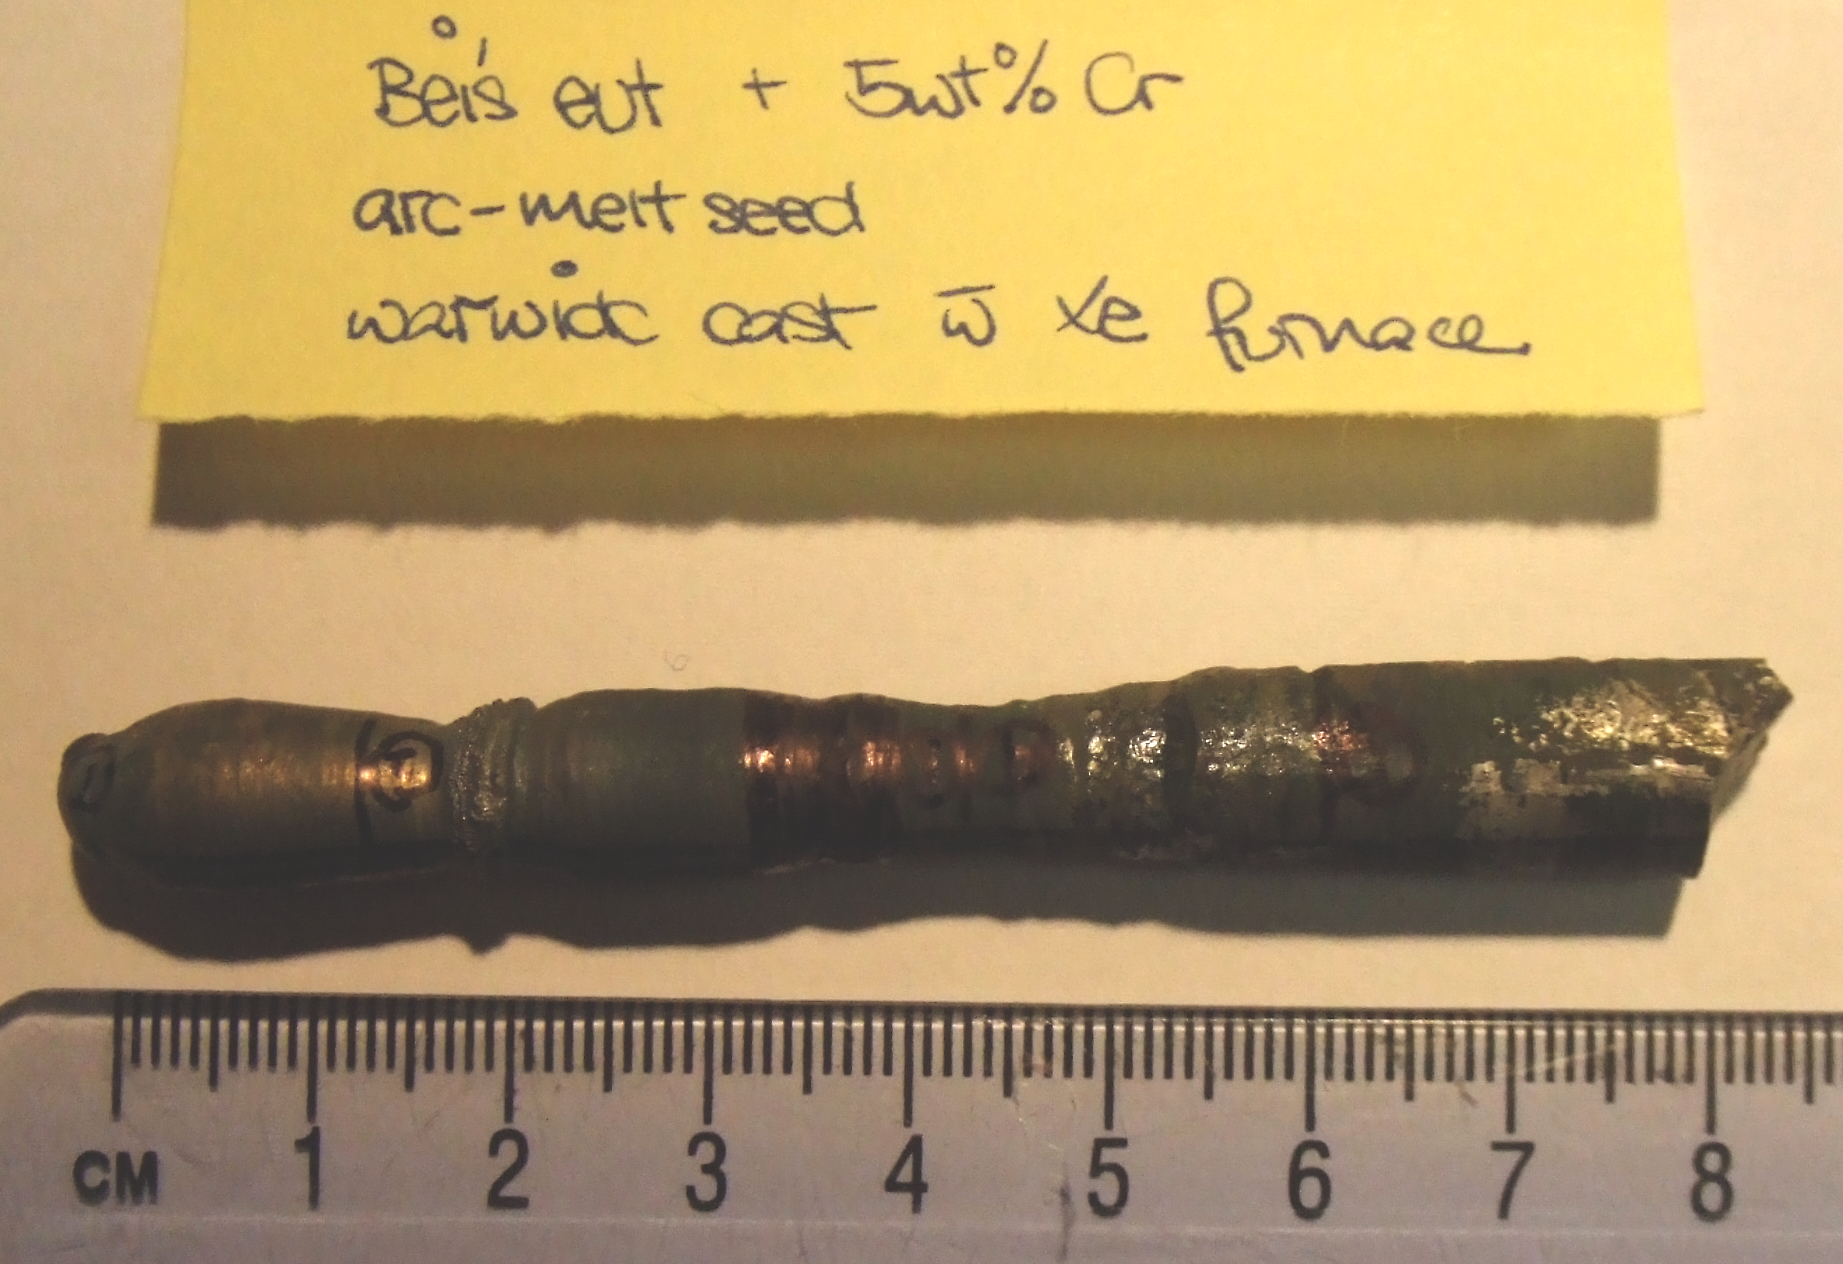 Bei's eut + 5wt% Cr
arc-melt seed
warwick cast w̄ Xe furnace
CM 1 2 3 4 5 6 7 8